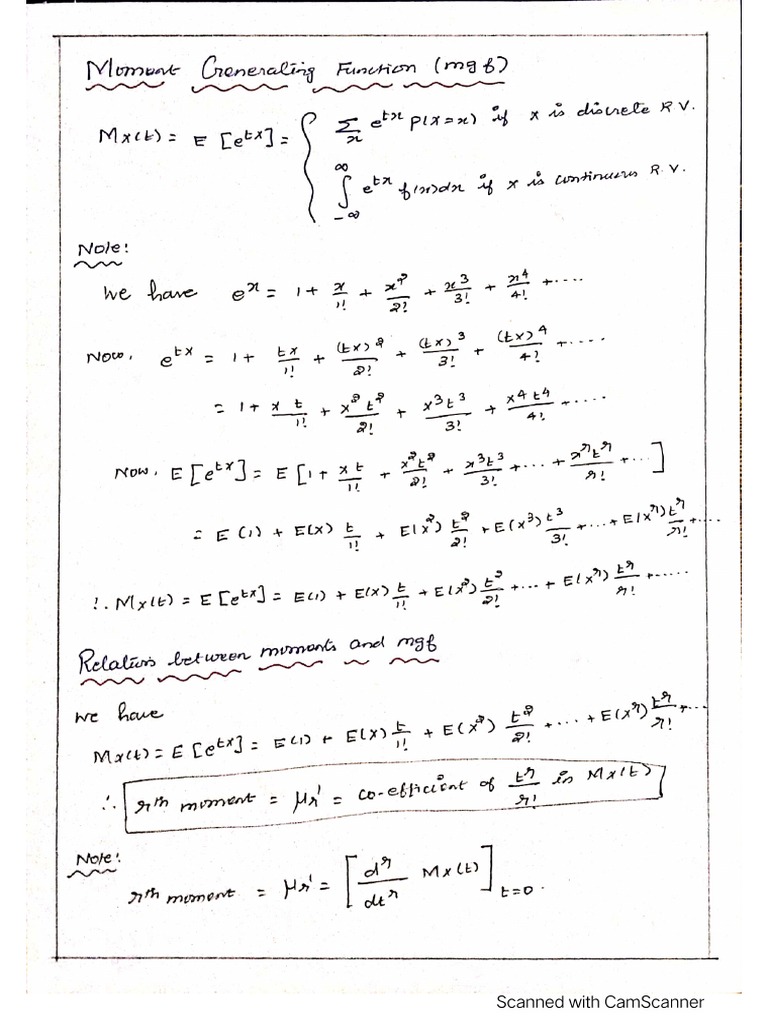 Moment Generating Function (mgf)
Mx(t) = E [e^tx] = { Σ_x e^tx P(X=x) if x is discrete R.V.
∫_-∞^∞ e^tx f(x)dx if x is continuous R.V.
Note:
We have e^x = 1 + x/1! + x^2/2! + x^3/3! + x^4/4! + ....
Now, e^tx = 1 + tx/1! + (tx)^2/2! + (tx)^3/3! + (tx)^4/4! + ....
= 1 + x t/1! + x^2 t^2/2! + x^3 t^3/3! + x^4 t^4/4! + ....
Now, E [e^tx] = E [1 + xt/1! + x^2t^2/2! + x^3t^3/3! + ... + x^r t^r/r! + ...]
= E(1) + E(x) t/1! + E(x^2) t^2/2! + E(x^3) t^3/3! + ... + E(x^r) t^r/r! + ....
∴ Mx(t) = E [e^tx] = E(1) + E(x) t/1! + E(x^2) t^2/2! + ... + E(x^r) t^r/r! + .....
Relation between moments and mgf
We have
Mx(t) = E [e^tx] = E(1) + E(x) t/1! + E(x^2) t^2/2! + ... + E(x^r) t^r/r! + ...
∴ rth moment = μr' = co-efficient of t^r/r! in Mx(t)
Note:
rth moment = μr' = [d^r/dt^r Mx(t)]_t=0.
Scanned with CamScanner